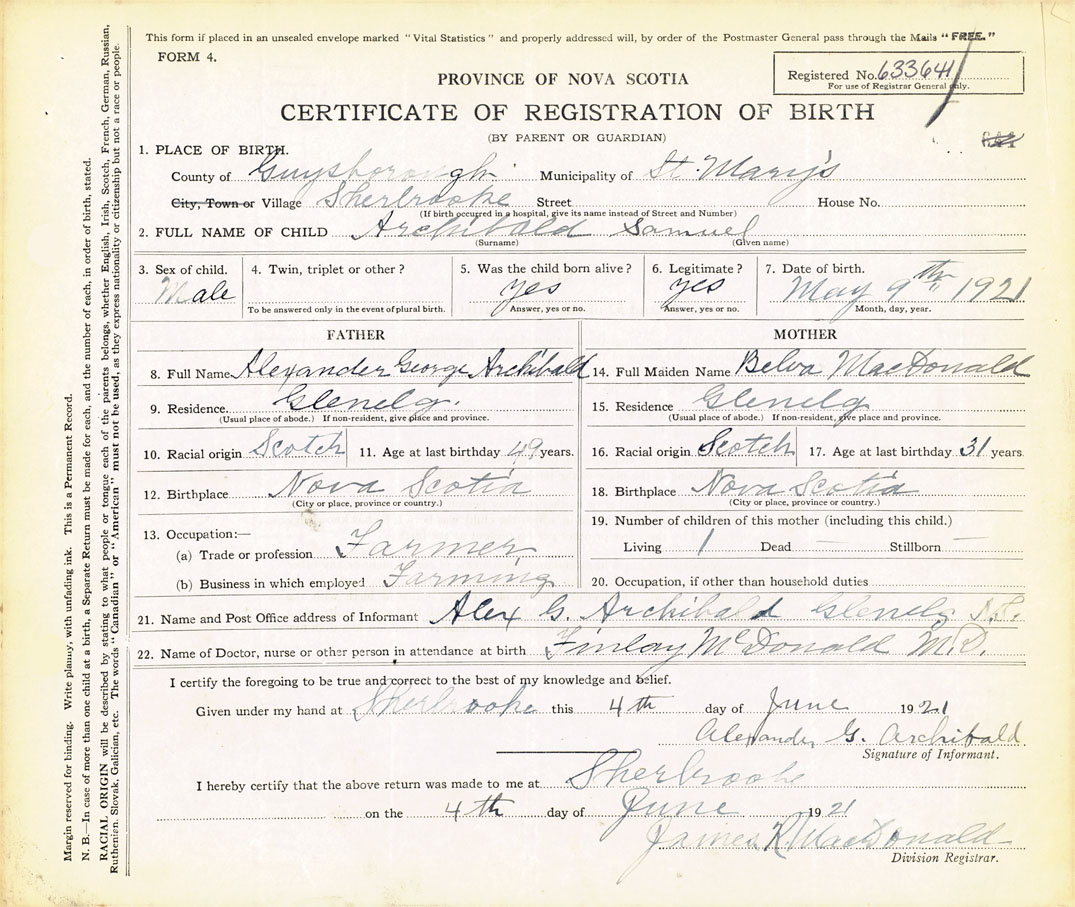 This form if placed in an unsealed envelope marked "Vital Statistics" and properly addressed will, by order of the Postmaster General pass through the Mails "FREE."
FORM 4.
Registered No. 633641
For use of Registrar General only.
PROVINCE OF NOVA SCOTIA
CERTIFICATE OF REGISTRATION OF BIRTH
(BY PARENT OR GUARDIAN)
1. PLACE OF BIRTH.
County of Guysborough Municipality of St. Mary's
City, Town or Village Sherbrooke Street House No.
(If birth occurred in a hospital, give its name instead of Street and Number)
2. FULL NAME OF CHILD Archibald Samuel
(Surname) (Given name)
3. Sex of child. 4. Twin, triplet or other? 5. Was the child born alive? 6. Legitimate? 7. Date of birth.
Male yes yes May 9th 1921
To be answered only in the event of plural birth. Answer, yes or no. Answer, yes or no. Month, day, year.
FATHER
8. Full Name Alexander George Archibald
9. Residence. Glenelg.
(Usual place of abode.) If non-resident, give place and province.
10. Racial origin Scotch 11. Age at last birthday 49 years.
12. Birthplace Nova Scotia
(City or place, province or country.)
13. Occupation:—
(a) Trade or profession Farmer
(b) Business in which employed Farming
MOTHER
14. Full Maiden Name Belva MacDonald
15. Residence Glenelg
(Usual place of abode.) If non-resident, give place and province.
16. Racial origin Scotch 17. Age at last birthday 31 years
18. Birthplace Nova Scotia
(City or place, province or country.)
19. Number of children of this mother (including this child.)
Living 1 Dead — Stillborn —
20. Occupation, if other than household duties
21. Name and Post Office address of Informant Alex G. Archibald Glenelg N.S.
22. Name of Doctor, nurse or other person in attendance at birth Finlay McDonald M.D.
I certify the foregoing to be true and correct to the best of my knowledge and belief.
Given under my hand at Sherbrooke this 4th day of June 1921
Alexander G. Archibald
Signature of Informant.
I hereby certify that the above return was made to me at Sherbrooke
on the 4th day of June 1921
James R. MacDonald
Division Registrar.
Margin reserved for binding. Write plainly, with unfading ink. This is a Permanent Record.
N. B.—In case of more than one child at a birth, a Separate Return must be made for each, and the number of each, in order of birth, stated.
RACIAL ORIGIN will be described by stating to what people or tongue each of the parents belongs, whether English, Irish, Scotch, French, German, Russian,
Ruthenian, Slovak, Galician, etc. The words "Canadian" or "American" must not be used, as they express nationality or citizenship but not a race or people.